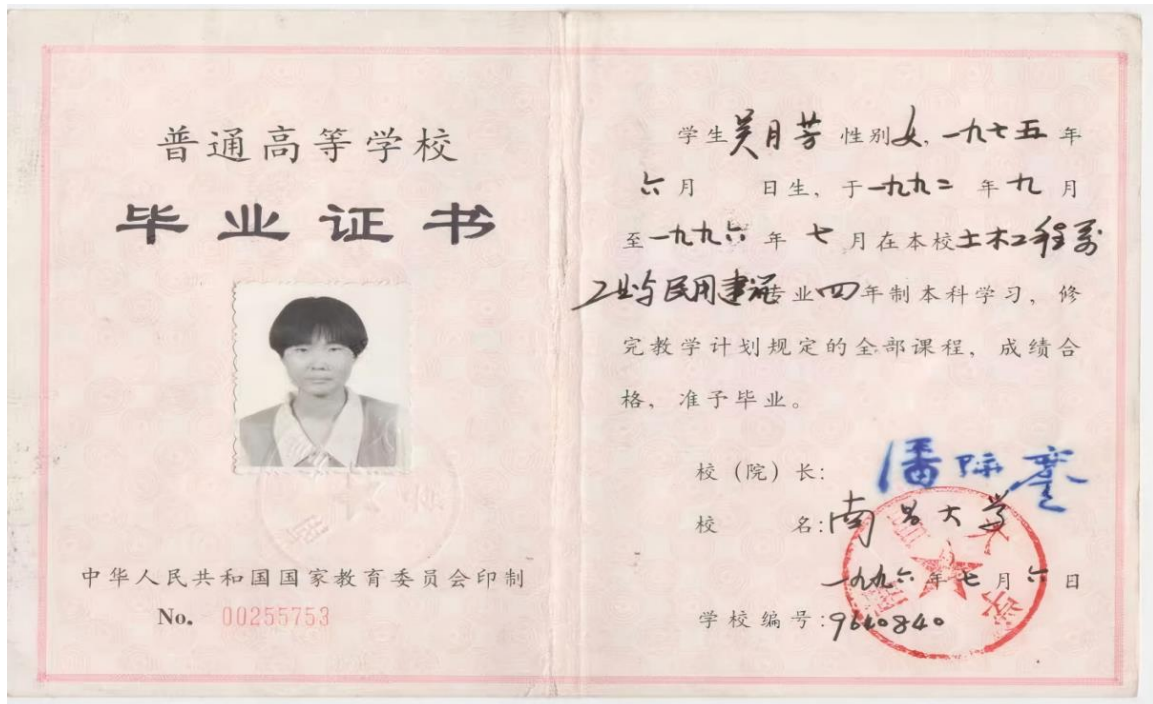 普通高等学校
毕业证书
中华人民共和国国家教育委员会印制
No. 00255753
学生吴月芳 性别女,一九七五年
六月 日生,于一九九二年九月
至一九九六年七月在本校土木工程系
工业与民用建筑专业四年制本科学习,修
完教学计划规定的全部课程,成绩合
格,准予毕业。
校(院)长:潘际銮
校 名:南昌大学
一九九六年七月六日
学校编号:9640840